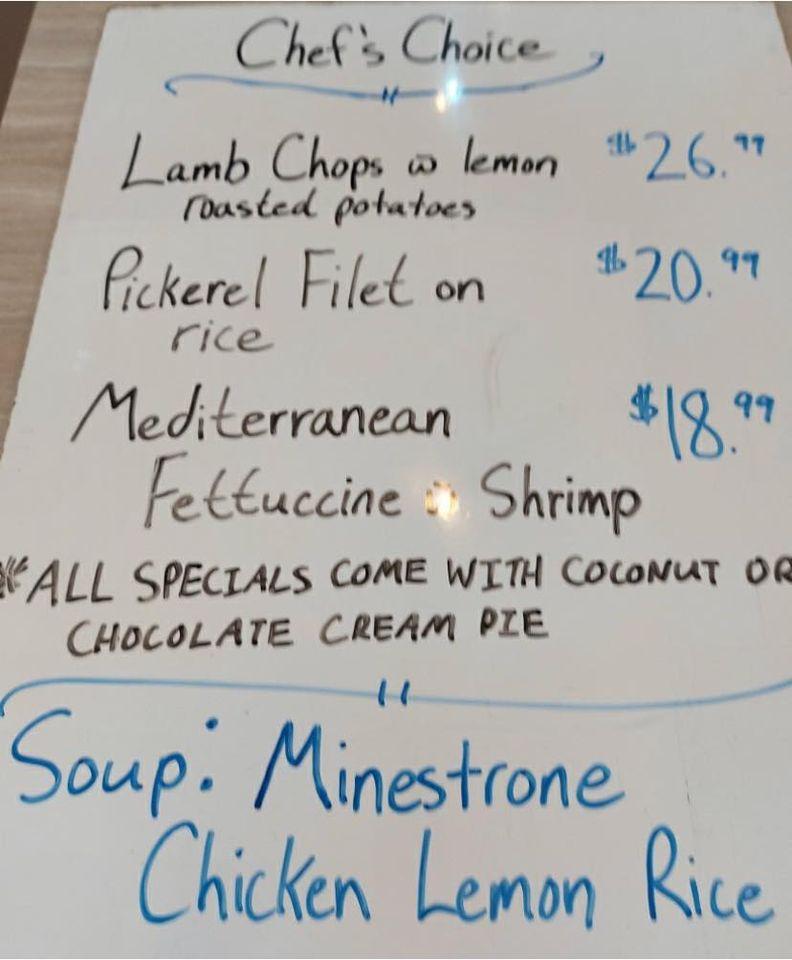 Chef's Choice
Lamb Chops w lemon $26.99
roasted potatoes
Pickerel Filet on $20.99
rice
Mediterranean $18.99
Fettuccine Shrimp
*ALL SPECIALS COME WITH COCONUT OR
CHOCOLATE CREAM PIE
Soup: Minestrone
Chicken Lemon Rice